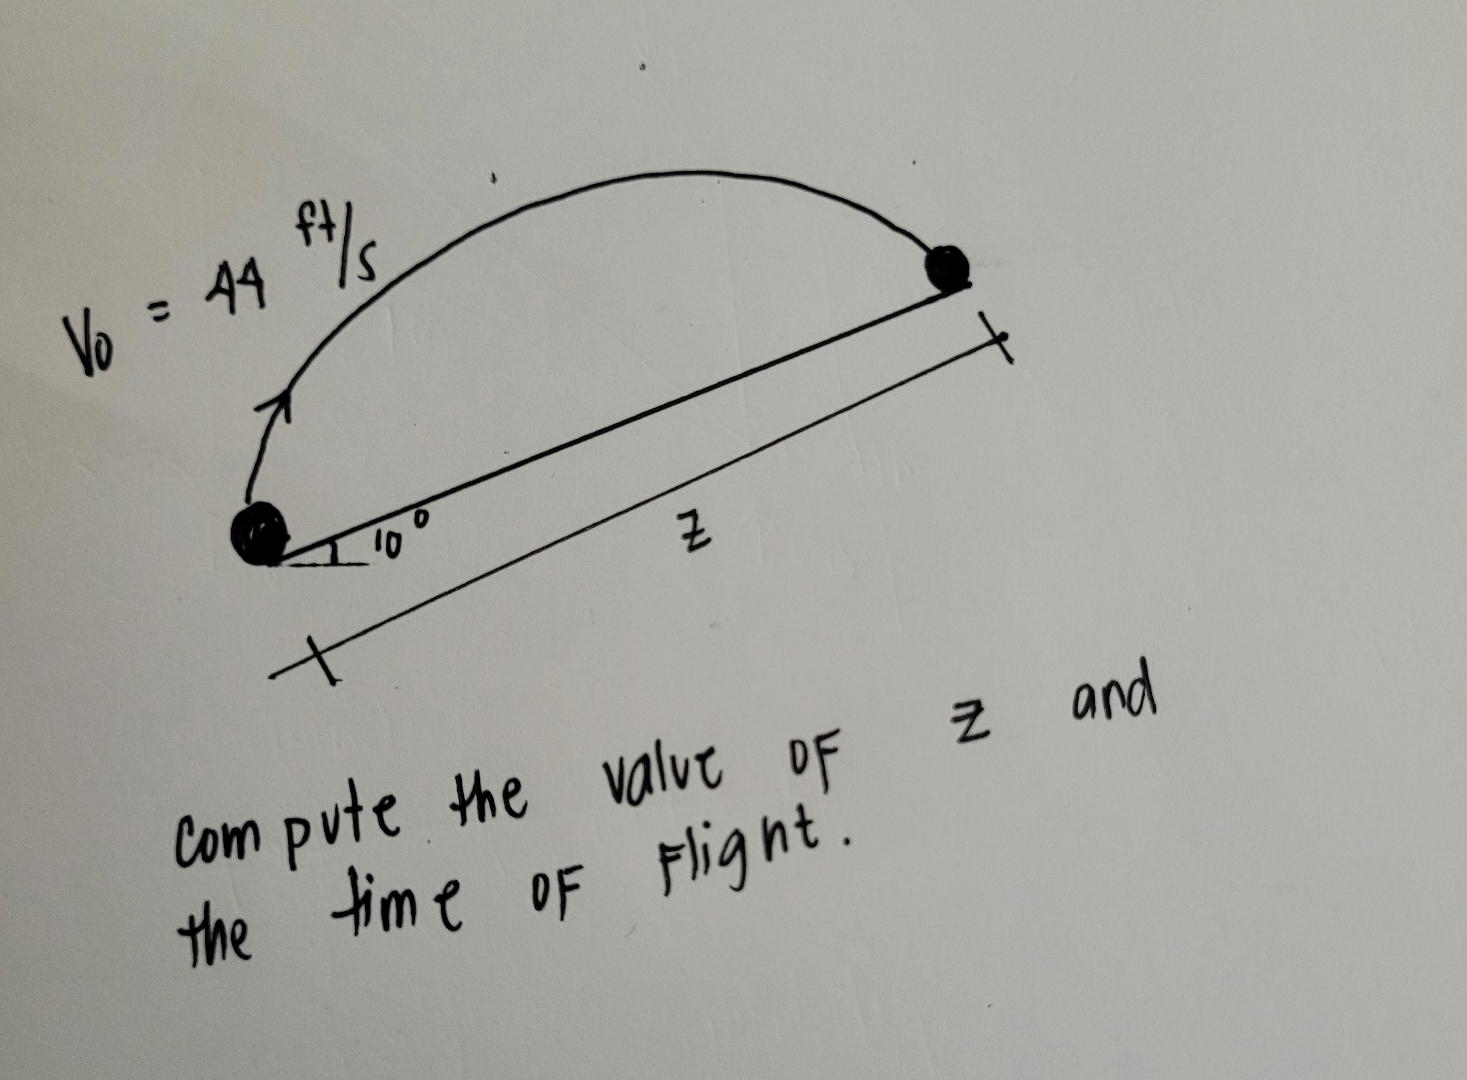 V0 = 44 ft/s
10°
z
compute the value of z and
the time of flight.